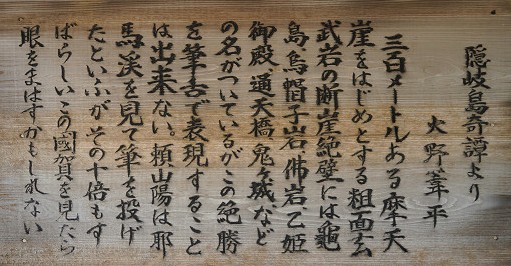 隠岐島奇譚より
火野葦平
三百メートルある摩天
崖をはじめとする粗面玄
武岩の断崖絶壁には亀
島、烏帽子岩、佛岩、乙姫
御殿、通天橋、鬼ヶ城など
の名がついているがこの絶勝
を筆舌で表現すること
は出来ない。頼山陽は耶
馬溪を見て筆を投げ
たといふがその十倍もす
ばらしいこの國賀を見たら
眼をまはすかもしれない